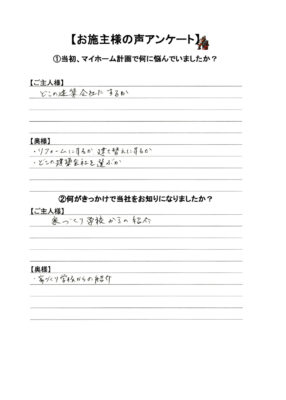 【お施主様の声アンケート】
①当初、マイホーム計画で何に悩んでいましたか？
【ご主人様】
どこの建築会社にするか
【奥様】
・リフォームにするか 建て替えにするか
・どこの建築会社を選ぶか
②何がきっかけで当社をお知りになりましたか？
【ご主人様】
家づくり学校からの紹介
【奥様】
・家づくり学校からの紹介